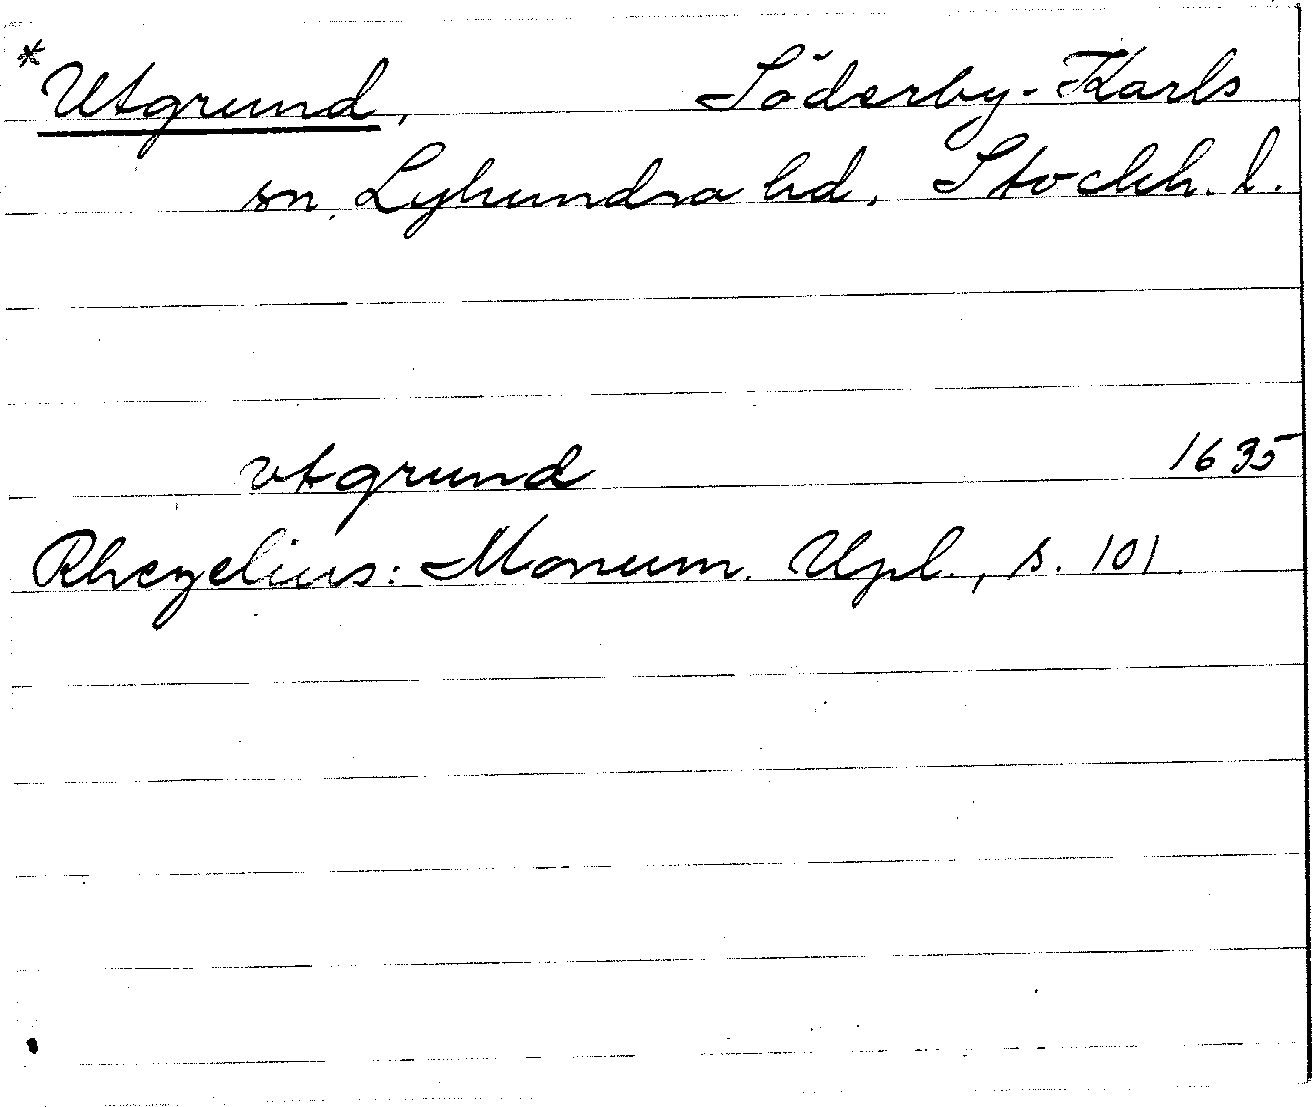 * Utgrund, Söderby-Karls
sn, Lyhundra hd, Stockh. l.
vtgrund 1635
Rhezelius: Monum. Upl., s. 101.